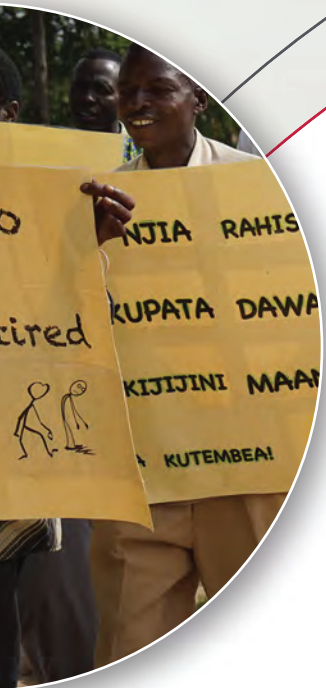 O
tired
NJIA RAHIS
KUPATA DAWA
KIJIJINI MAAN
A KUTEMBEA!